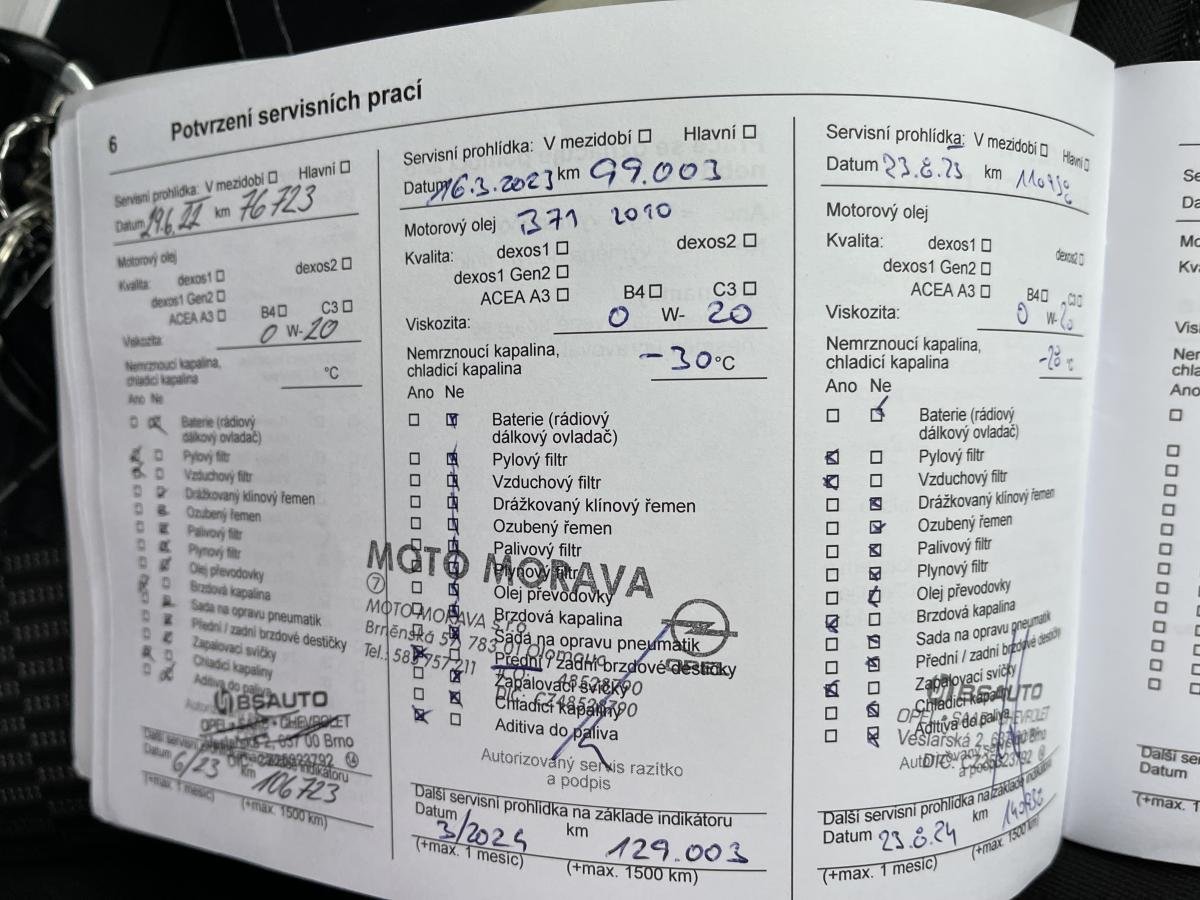 6 Potvrzení servisních prací
Servisní prohlídka: V mezidobí Hlavní
Datum 29.6.22 km 76723
Motorový olej
Kvalita: dexos1 dexos2
dexos1 Gen2
ACEA A3 B4 C3
Viskozita: 0 W- 20
Nemrznoucí kapalina,
chladicí kapalina °C
Ano Ne
Baterie (rádiový
dálkový ovladač)
Pylový filtr
Vzduchový filtr
Drážkovaný klínový řemen
Ozubený řemen
Palivový filtr
Plynový filtr
Olej převodovky
Brzdová kapalina
Sada na opravu pneumatik
Přední / zadní brzdové destičky
Zapalovací svíčky
Chladicí kapaliny
Aditiva do paliva
BSAUTO
OPEL • SAAB • CHEVROLET
Veslařská 2, 637 00 Brno
Další servisní prohlídka na základě indikátoru
Datum 6/23 km 106723
(+max. 1 mesic) (+max. 1500 km)
Servisní prohlídka: V mezidobí Hlavní
Datum 16.3.2023 km 99.003
Motorový olej B71 2010
Kvalita: dexos1 dexos2
dexos1 Gen2
ACEA A3 B4 C3
Viskozita: 0 W- 20
Nemrznoucí kapalina,
chladicí kapalina -30 °C
Ano Ne
Baterie (rádiový
dálkový ovladač)
Pylový filtr
Vzduchový filtr
Drážkovaný klínový řemen
Ozubený řemen
Palivový filtr
Plynový filtr
Olej převodovky
Brzdová kapalina
Sada na opravu pneumatik
Přední / zadní brzdové destičky
Zapalovací svíčky
Chladicí kapaliny
Aditiva do paliva
MOTO MORAVA
7
MOTO MORAVA s.r.o.
Brněnská 57, 783 01 Olomouc
Tel.: 585 757 211
48528790
DIČ: CZ48528790
OPEL
Autorizovaný servis razítko
a podpis
Další servisní prohlídka na základě indikátoru
Datum 3/2024 km 129.003
(+max. 1 mesic) (+max. 1500 km)
Servisní prohlídka: V mezidobí Hlavní
Datum 23.8.23 km
Motorový olej
Kvalita: dexos1 dexos2
dexos1 Gen2
ACEA A3 B4 C3
Viskozita: 0 W- 20
Nemrznoucí kapalina,
chladicí kapalina °C
Ano Ne
Baterie (rádiový
dálkový ovladač)
Pylový filtr
Vzduchový filtr
Drážkovaný klínový řemen
Ozubený řemen
Palivový filtr
Plynový filtr
Olej převodovky
Brzdová kapalina
Sada na opravu pneumatik
Přední / zadní brzdové destičky
Zapalovací svíčky
Chladicí kapaliny
Aditiva do paliva
BSAUTO
OPEL • SAAB • CHEVROLET
Veslařská 2, 637 00 Brno
Další servisní prohlídka na základě indikátoru
Datum 23.8.24 km
(+max. 1 mesic) (+max. 1500 km)
Datum